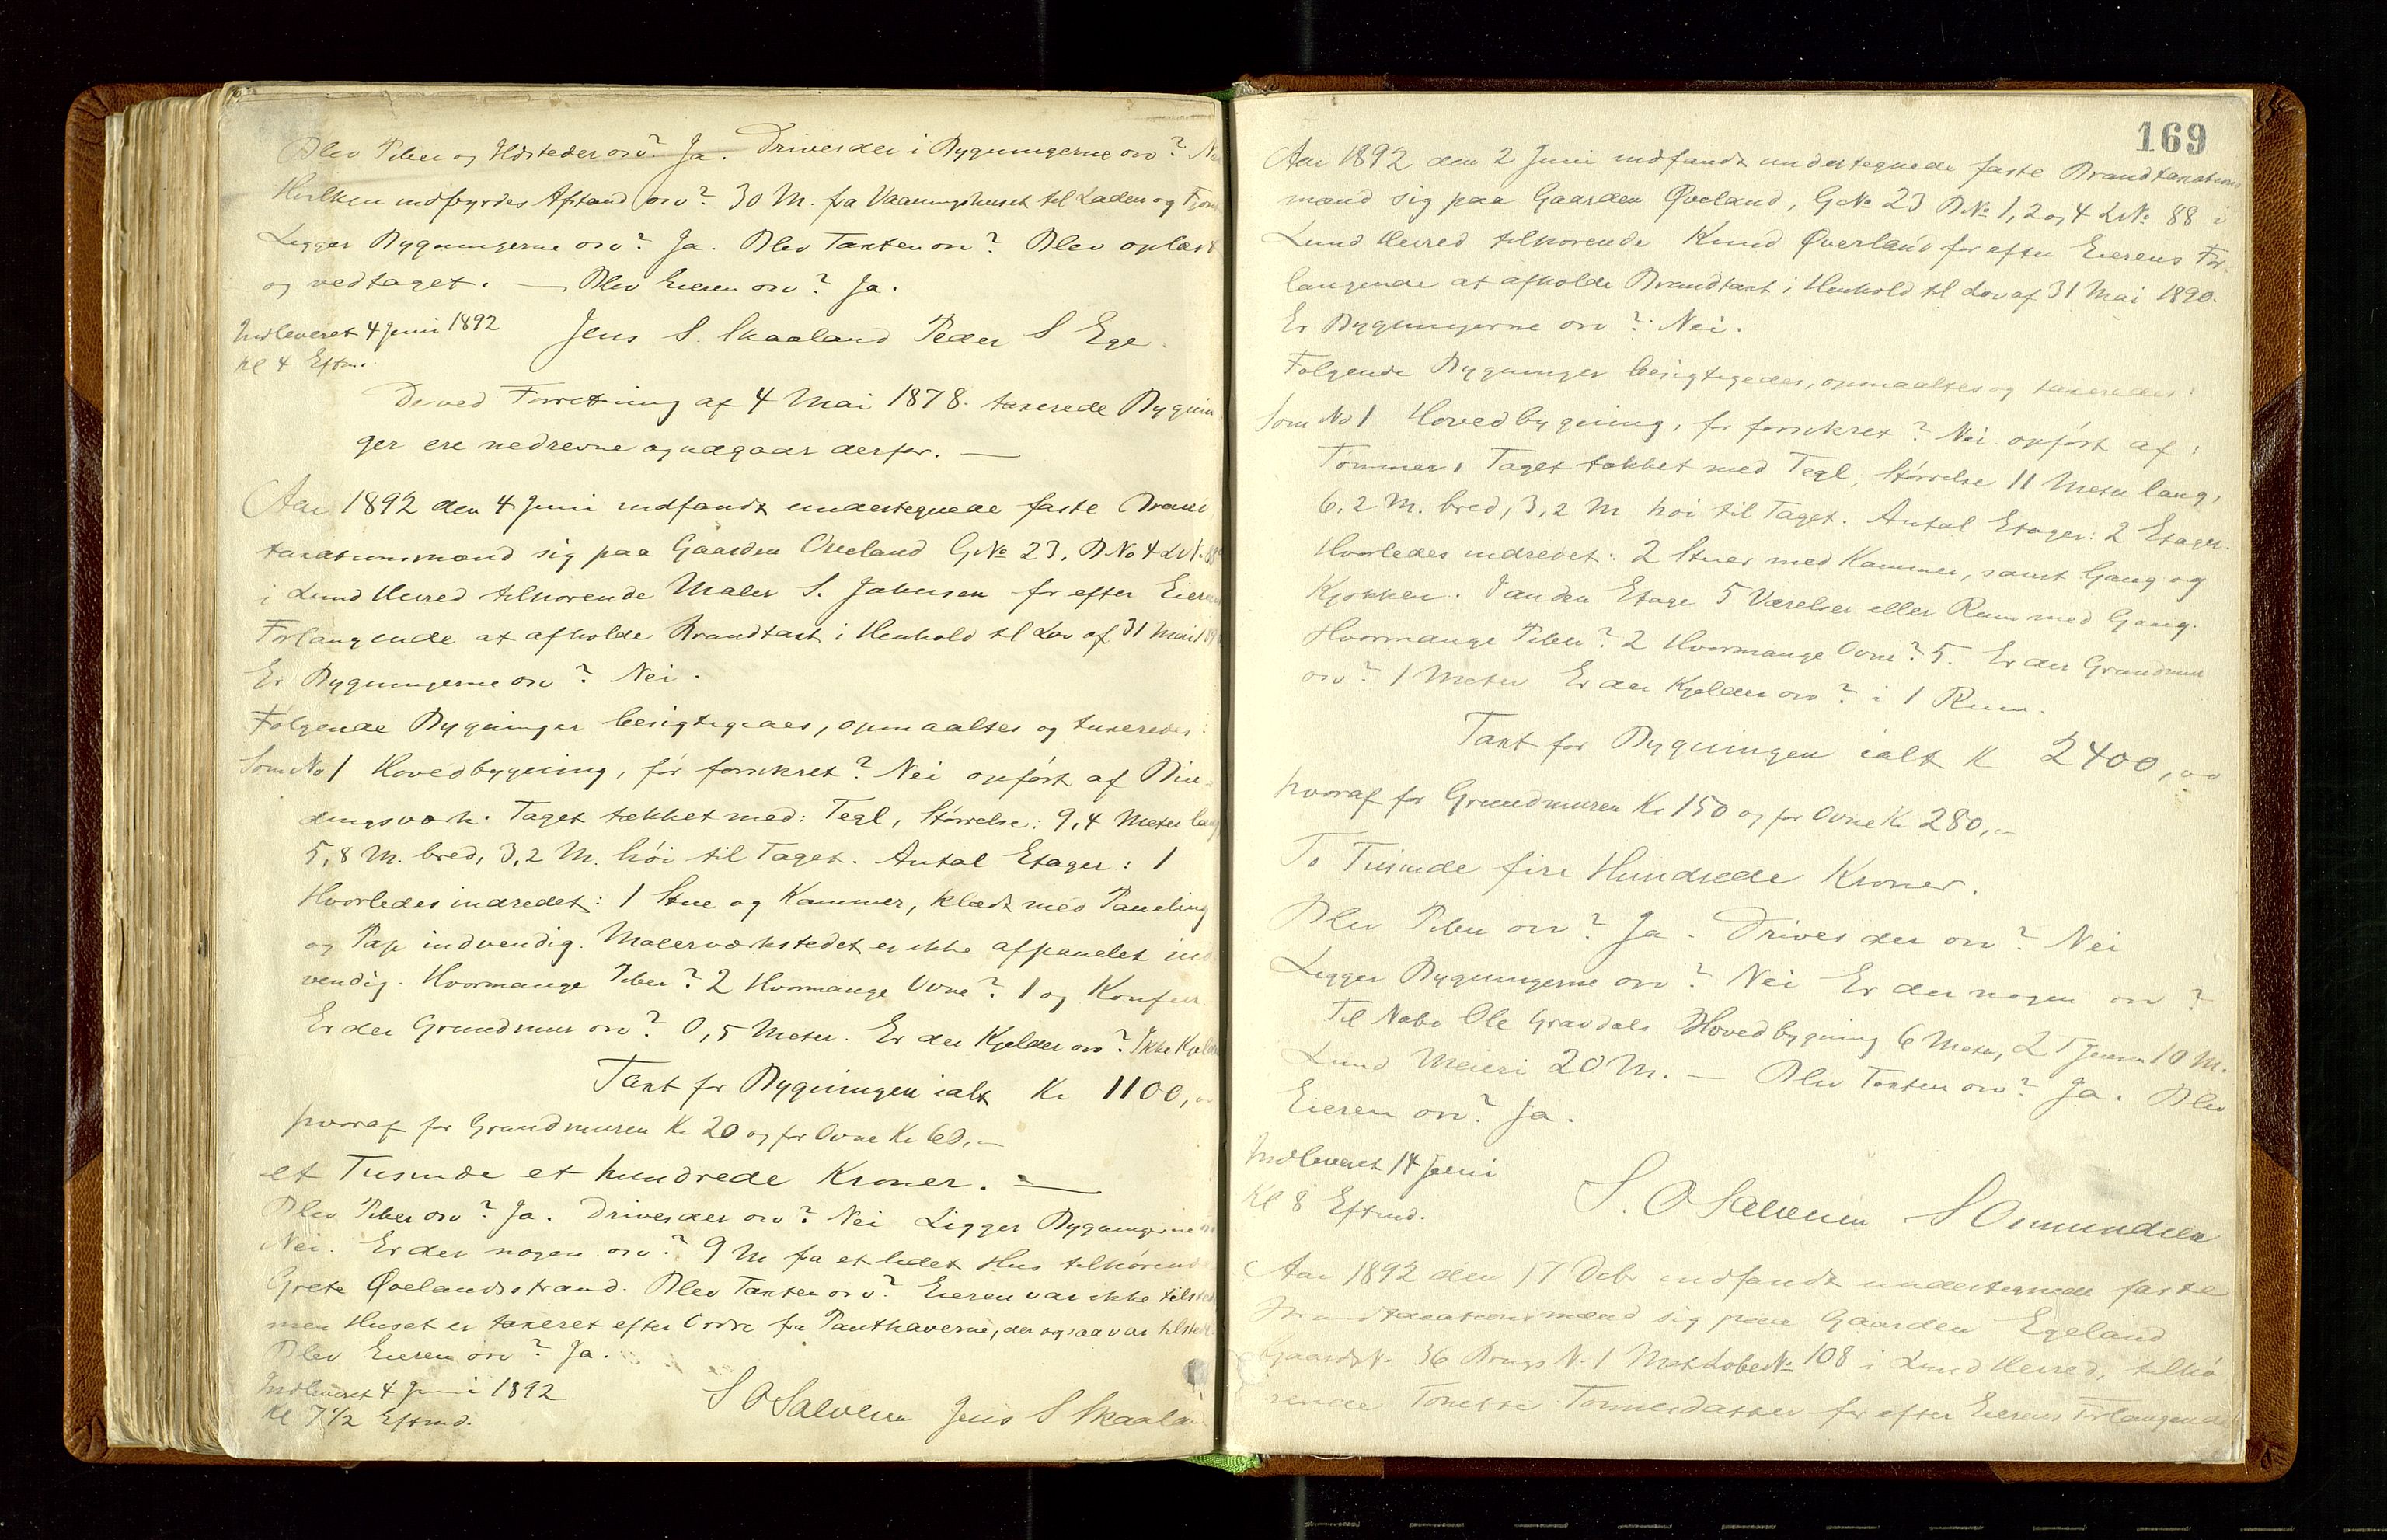 Blev Piber og Ildsteder osv? Ja. Drives der i Bygningerne osv? Nei
Hvilken indbyrdes Afstand osv? 30 M. fra Vaaningshuset til Laden og
Ligger Bygningerne osv? Ja. Blev Taxten osv? Blev oplæst
og vedtaget. — Blev Eieren osv? Ja.
Indleveret 4 Juni 1892 Jens S. Skaaland Peder S Ege
Kl 4 Eftm.
De ved Forretning af 4 Mai 1878 taxerede Bygnin
ger ere nedrevne og udgaar derfor. —
Aar 1892 den 4 Juni indfandt undertegnede faste Brand
taxationsmænd sig paa Gaarden Oveland G№ 23, B.No 4 L№ 88
i Lund Herred tilhørende Maler S. Jahnsen for efter Eierens
Forlangende at afholde Brandtaxt i Henhold til Lov af 31 Mai
Er Bygningerne osv? Nei.
Følgende Bygninger besigtigedes, opmaaltes og taxeredes:
Som No 1 Hovedbygning, før forsikret? Nei opført af Bin-
dingsværk. Taget tækket med: Tegl, Størrelse: 9,4 Meter lang
5,8 M. bred, 3,2 M. høi til Taget. Antal Etager: 1
Hvorledes indredet: 1 Stue og Kammer, klædt med Paneling
og Pap indvendig. Malerværkstedet er ikke afpanelet ind
vendig. Hvormange Piber? 2 Hvormange Ovne? 1 og Komfur.
Er der Grundmur osv? 0,5 Meter. Er der Kjelder osv? Ikke Kjelder
Taxt for Bygningen ialt Kr 1100,
hvoraf for Grundmuren Kr 20 og for Ovne Kr 60,—
et Tusinde et hundrede Kroner. —
Blev Piber osv? Ja. Drives der osv? Nei Ligger Bygningerne
Nei. Er der nogen osv? 9 M fra et lidet Hus tilhørende
Grete Øvelandsstrand. Blev Taxten osv? Eieren var ikke tilstede
men Huset er taxeret efter Ordre fra Panthaverne, der ogsaa var tilstede.
Blev Eieren osv? Ja.
Indleveret 4 Juni 1892 S O Salvesen Jens S Skaaland
Kl 7 1/2 Eftmd.
169
Aar 1892 den 2 Juni indfandt undertegnede faste Brandtaxations
mænd sig paa Gaarden Øveland, G№ 23 B№ 1, 2 og 4 L№ 88 i
Lund Herred tilhørende Knud Øverland for efter Eierens For-
langende at afholde Brandtaxt i Henhold til Lov af 31 Mai 1890.
Er Bygningerne osv? Nei.
Følgende Bygninger besigtigedes, opmaaltes og taxeredes:
Som No 1 Hovedbygning, før forsikret? Nei. opført af:
Tømmer, Taget tækket med Tegl, Størrelse 11 Meter lang,
6,2 M. bred, 3,2 M høi til Taget. Antal Etager: 2 Etager.
Hvorledes indredet: 2 Stuer med Kammer, samt Gang og
Kjøkken. I anden Etage 5 Værelser eller Rum med Gang.
Hvormange Piber? 2 Hvormange Ovne? 5. Er der Grundmur
osv? 1 Meter Er der Kjelder osv? i 1 Rum.
Taxt for Bygningen ialt K 2400,00
hvoraf for Grundmuren Kr 150 og for Ovne Kr 280,—
To Tusinde fire Hundrede Kroner.
Blev Piber osv? Ja. Drives der osv? Nei
Ligger Bygningerne osv? Nei Er der nogen osv?
Til Nabo Ole Gravdals Hovedbygning 6 Meter, 10 M.
Lund Meieri 20 M. — Blev Taxten osv? Ja. Blev
Eieren osv? Ja.
Indleveret 14 Juni
Kl 8 Eftmd. S. O Salvesen S Osmundsen
Aar 1892 den 17 Octbr indfandt undertegnede faste
Brandtaxationsmænd sig paa Gaarden Egeland
Gaards N. 36 Brugs N. 1 Mat Løbe№ 108 i Lund Herred, tilhø
rende Tonesdatter for efter Eierens Forlangende